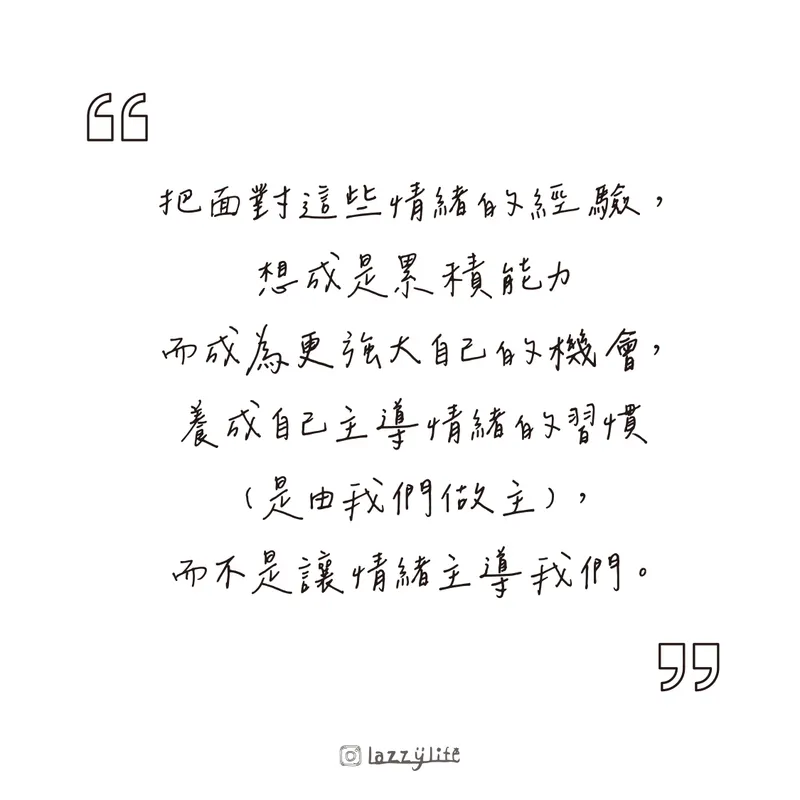 “
把面對這些情緒的經驗，
想成是累積能力
而成為更強大自己的機會，
養成自己主導情緒的習慣
（是由我們做主），
而不是讓情緒主導我們。
”
lazzylife